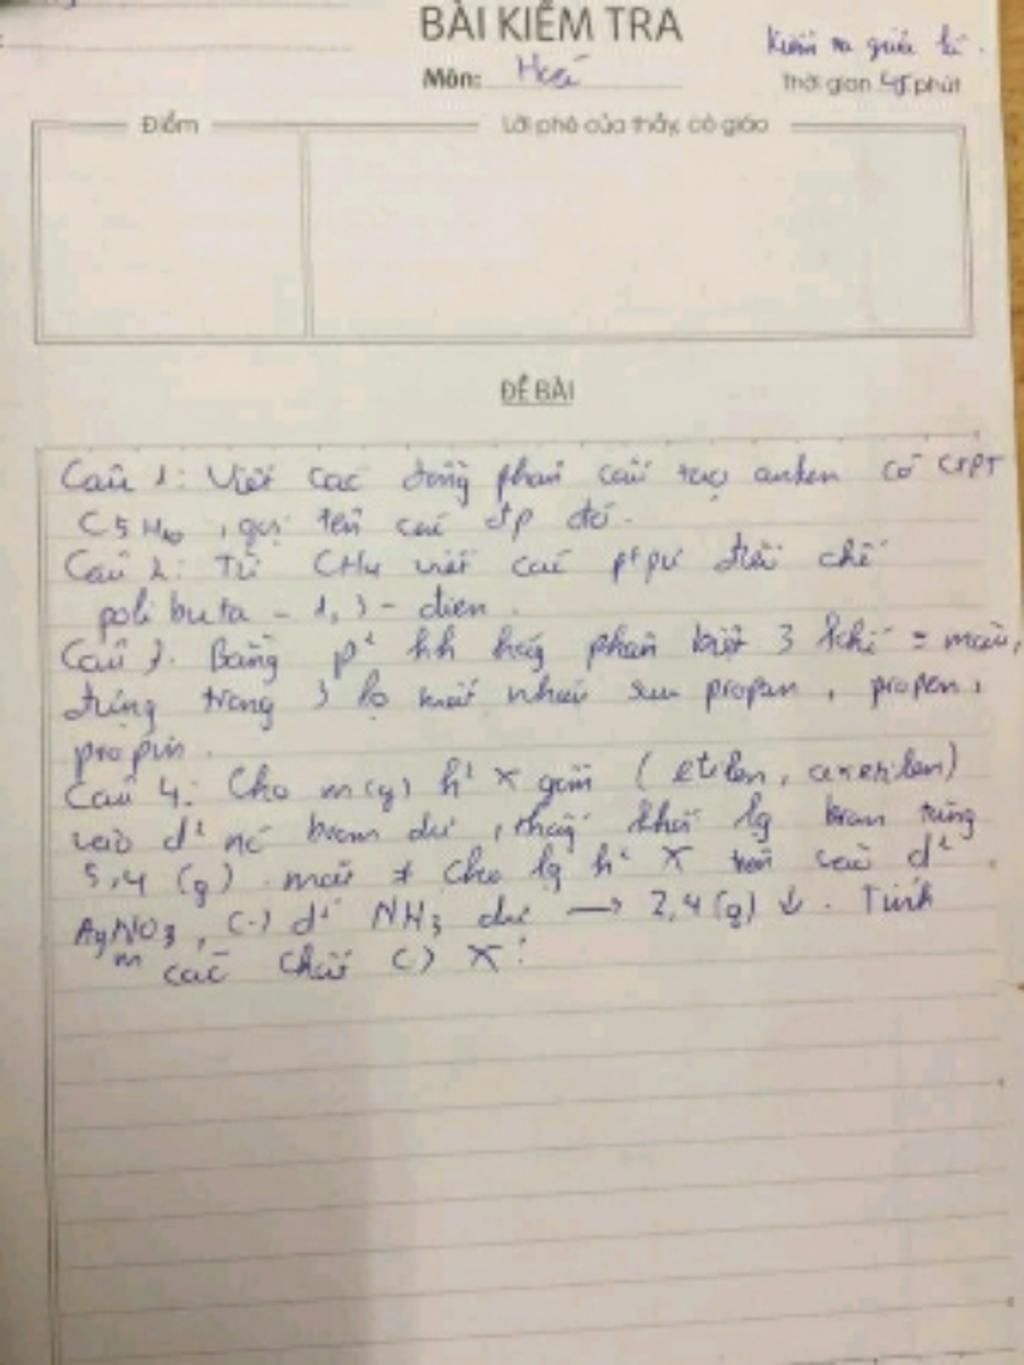 BÀI KIỂM TRA
Môn: Hoá
Kiểm tra giữa kì.
Thời gian 45 phút
Điểm
Lời phê của thầy, cô giáo
ĐỀ BÀI
Câu 1: Viết các đồng phân cấu tạo anken có CTPT
C5H10, gọi tên các đp đó.
Câu 2: Từ CH4 viết các ptpư điều chế
poli buta - 1,3 - dien.
Câu 3. Bằng p² hh hãy phân biệt 3 khí = màu,
đựng trong 3 lọ mất nhãn sau propan, propen,
propin.
Câu 4: Cho m(g) h² X gồm (etilen, axetilen)
vào d² nc brom dư, thấy khối lg brom tăng
5,4 (g). mặt ≠ cho lg h² X trên vào d²
AgNO3, (-) d² NH3 dư → 2,4 (g) ↓. Tính
m các chất () X?